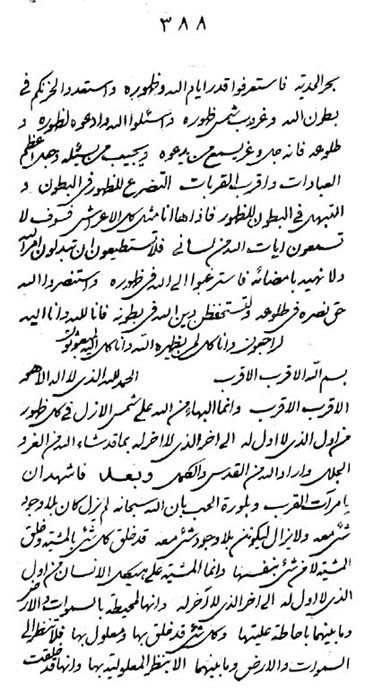 ٣٨٨
بحر المدية فاستعرفوا قدر ايام الله وظهوره واستعدوا لحزنكم في
بطون الله وغروب شمس ظهوره واسئلوا الله وادعوه لظهوره و
طلوعه فانه جل وعز يسمع من يدعوه ويجيب من يسئله وجعل اعظم
العبادات واقرب القربات التضرع للظهور في البطون و
التبهى في البطون للظهور فاذا هاانا مثل كل الاعراش فسوف لا
تسمعون ايات الله من لساني فلا تستطيعون ان تبدلون امر الله
ولا نهيه بامضائه فاسترغبوا الى الله في ظهوره واستنصروا الله
حق نصره في طلوعه ولتستحفظن دين الله في بطونه فانا لله وانا اليه
لراجعون وانا كل لمن يظهره الله وانا كل اليه
بسم الله الاقرب الاقرب الحمد لله الذي لا اله الا هو
الاقرب الاقرب وانما البهاء من الله على شمس الازل في كل ظهور
من اول الذي لا اول له الى اخر الذي لا اخر له بما قد شاء الله من العز و
الجلال واراد الله من القدس والكمال وبعد فاشهد ان
يا مرآت القرب وبلورة الحب بان الله سبحانه لم يزل كان بلا وجود
شئ معه ولا يزال ليكونن بلا وجود شئ معه قد خلق كل شئ بالمشية وخلق
المشية لا من شئ بنفسها وانما المشية على هيكل الانسان من اول
الذي لا اول له الى اخر الذي لا اخر له وانها لمحيطة بالسموات والارض
وما بينهما باحاطة عليتها وكل شئ قد خلق بها ومعلول بها فلا تنظر الى
السموات والارض وما بينهما الا بنظر المعلولية بها وانها قد خلقت